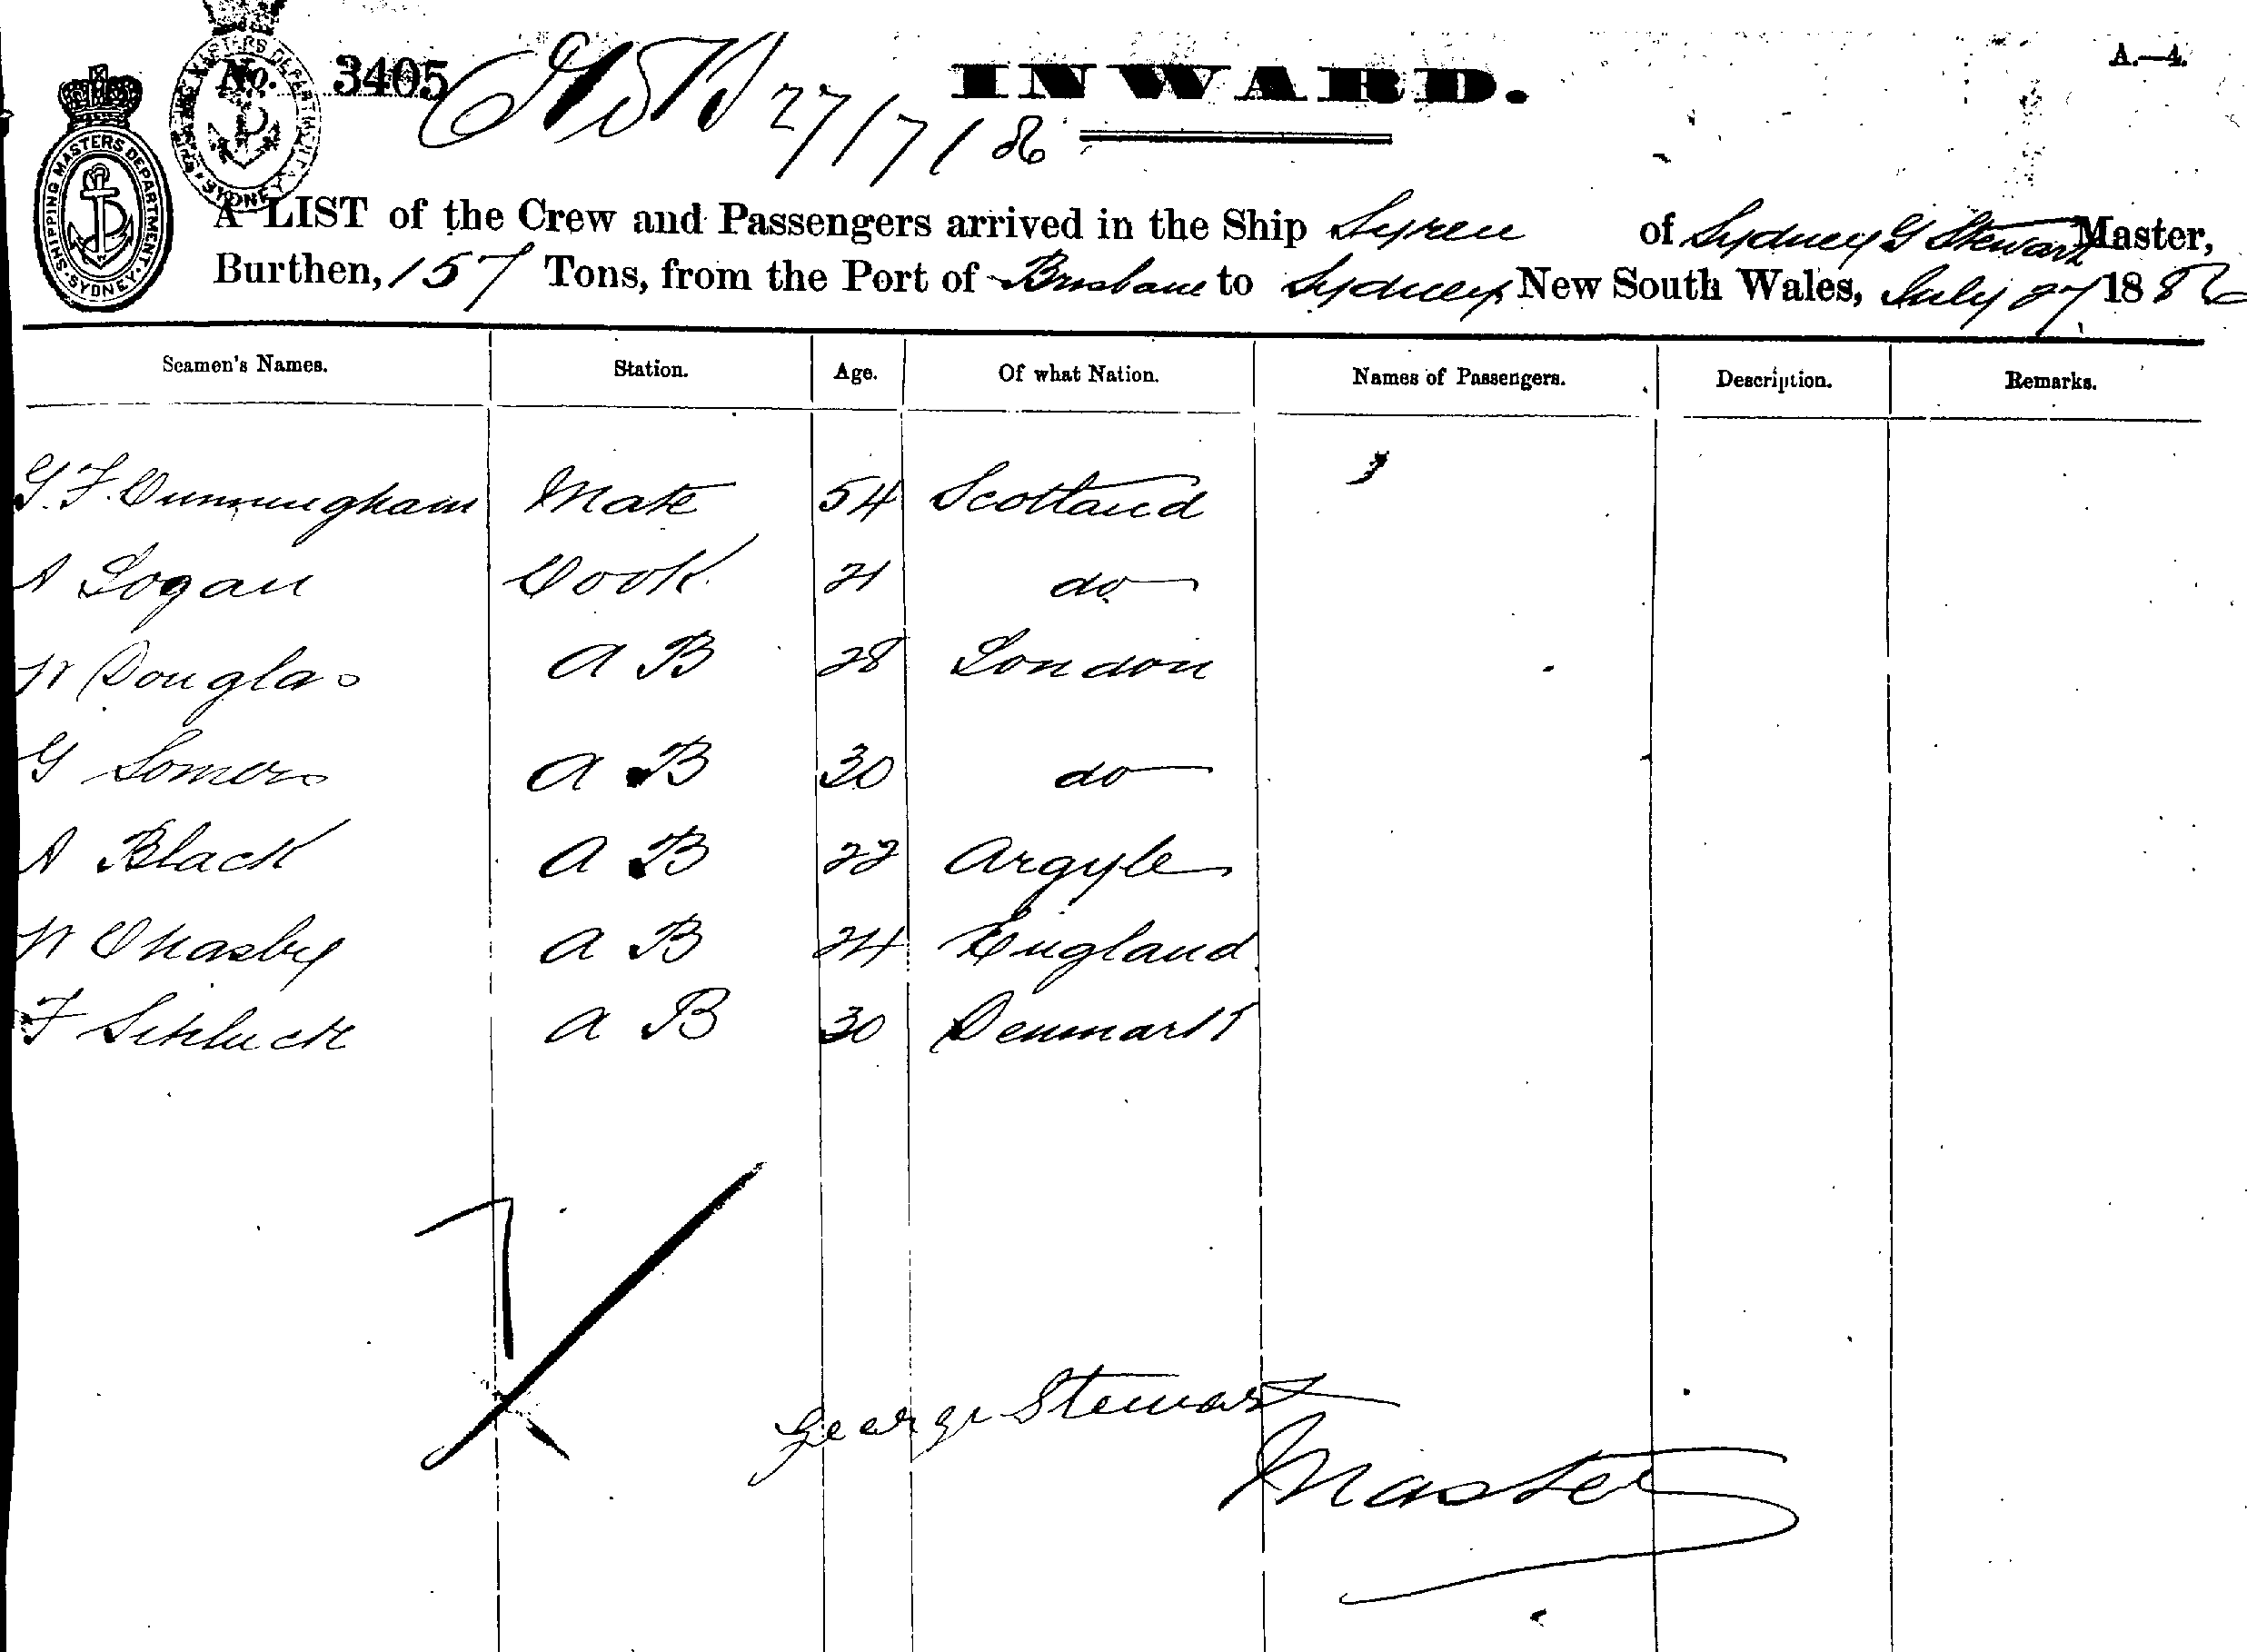 No. 3405
27/7/86
INWARD.
A.—4.
SHIPPING MASTERS DEPARTMENT. SYDNEY.
A LIST of the Crew and Passengers arrived in the Ship Syren of Sydney G Stewart Master,
Burthen, 157 Tons, from the Port of Brisbane to Sydney New South Wales, July 27 1886
Seamen's Names. Station. Age. Of what Nation. Names of Passengers. Description. Remarks.
G. F. Cunningham Mate 54 Scotland
A Logan Cook 21 do
W Douglas A B 28 London
G Somers A B 30 do
A Black A B 22 Argyle
W Chasby A B 24 England
F Schluck A B 30 Denmark
7
George Stewart
Master